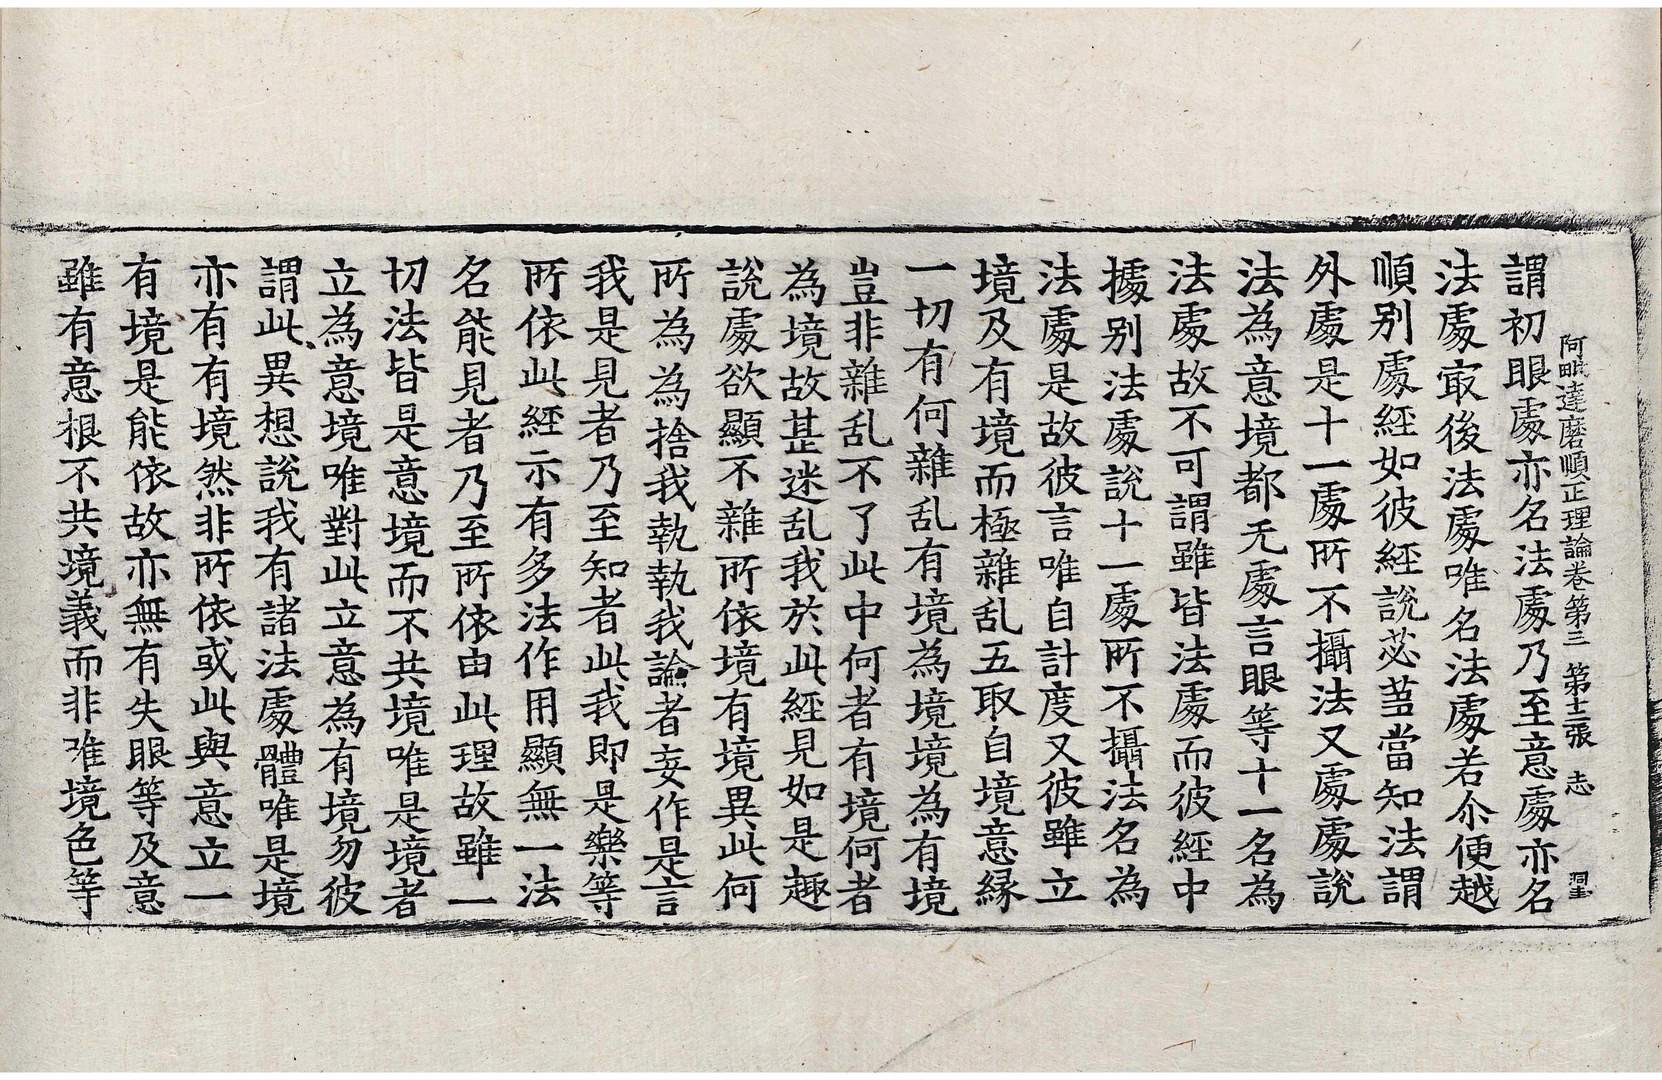 阿毗達磨順正理論卷第三 第十二張 志
謂初眼處亦名法處乃至意處亦名
法處㝡後法處唯名法處若尒便越
順别處經如彼經説苾蒭當知法謂
外處是十一處所不攝法又處處説
法為意境都无處言眼等十一名為
法處故不可謂雖皆法處而彼經中
據别法處説十一處所不攝法名為
法處是故彼言唯自計度又彼雖立
境及有境而極雜乱五取自境意緣
一切有何雜乱有境為境境為有境
豈非雜乱不了此中何者有境何者
為境故甚迷乱我於此經見如是趣
説處欲顯不雜所依境有境異此何
所為為捨我執執我論者妄作是言
我是見者乃至知者此我即是樂等
所依此經示有多法作用顯無一法
名能見者乃至所依由此理故雖一
切法皆是意境而不共境唯是境者
立為意境唯對此立意為有境勿彼
謂此異想説我有諸法處體唯是境
亦有有境然非所依或此與意立一
有境是能依故亦無有失眼等及意
雖有意根不共境義而非唯境色等